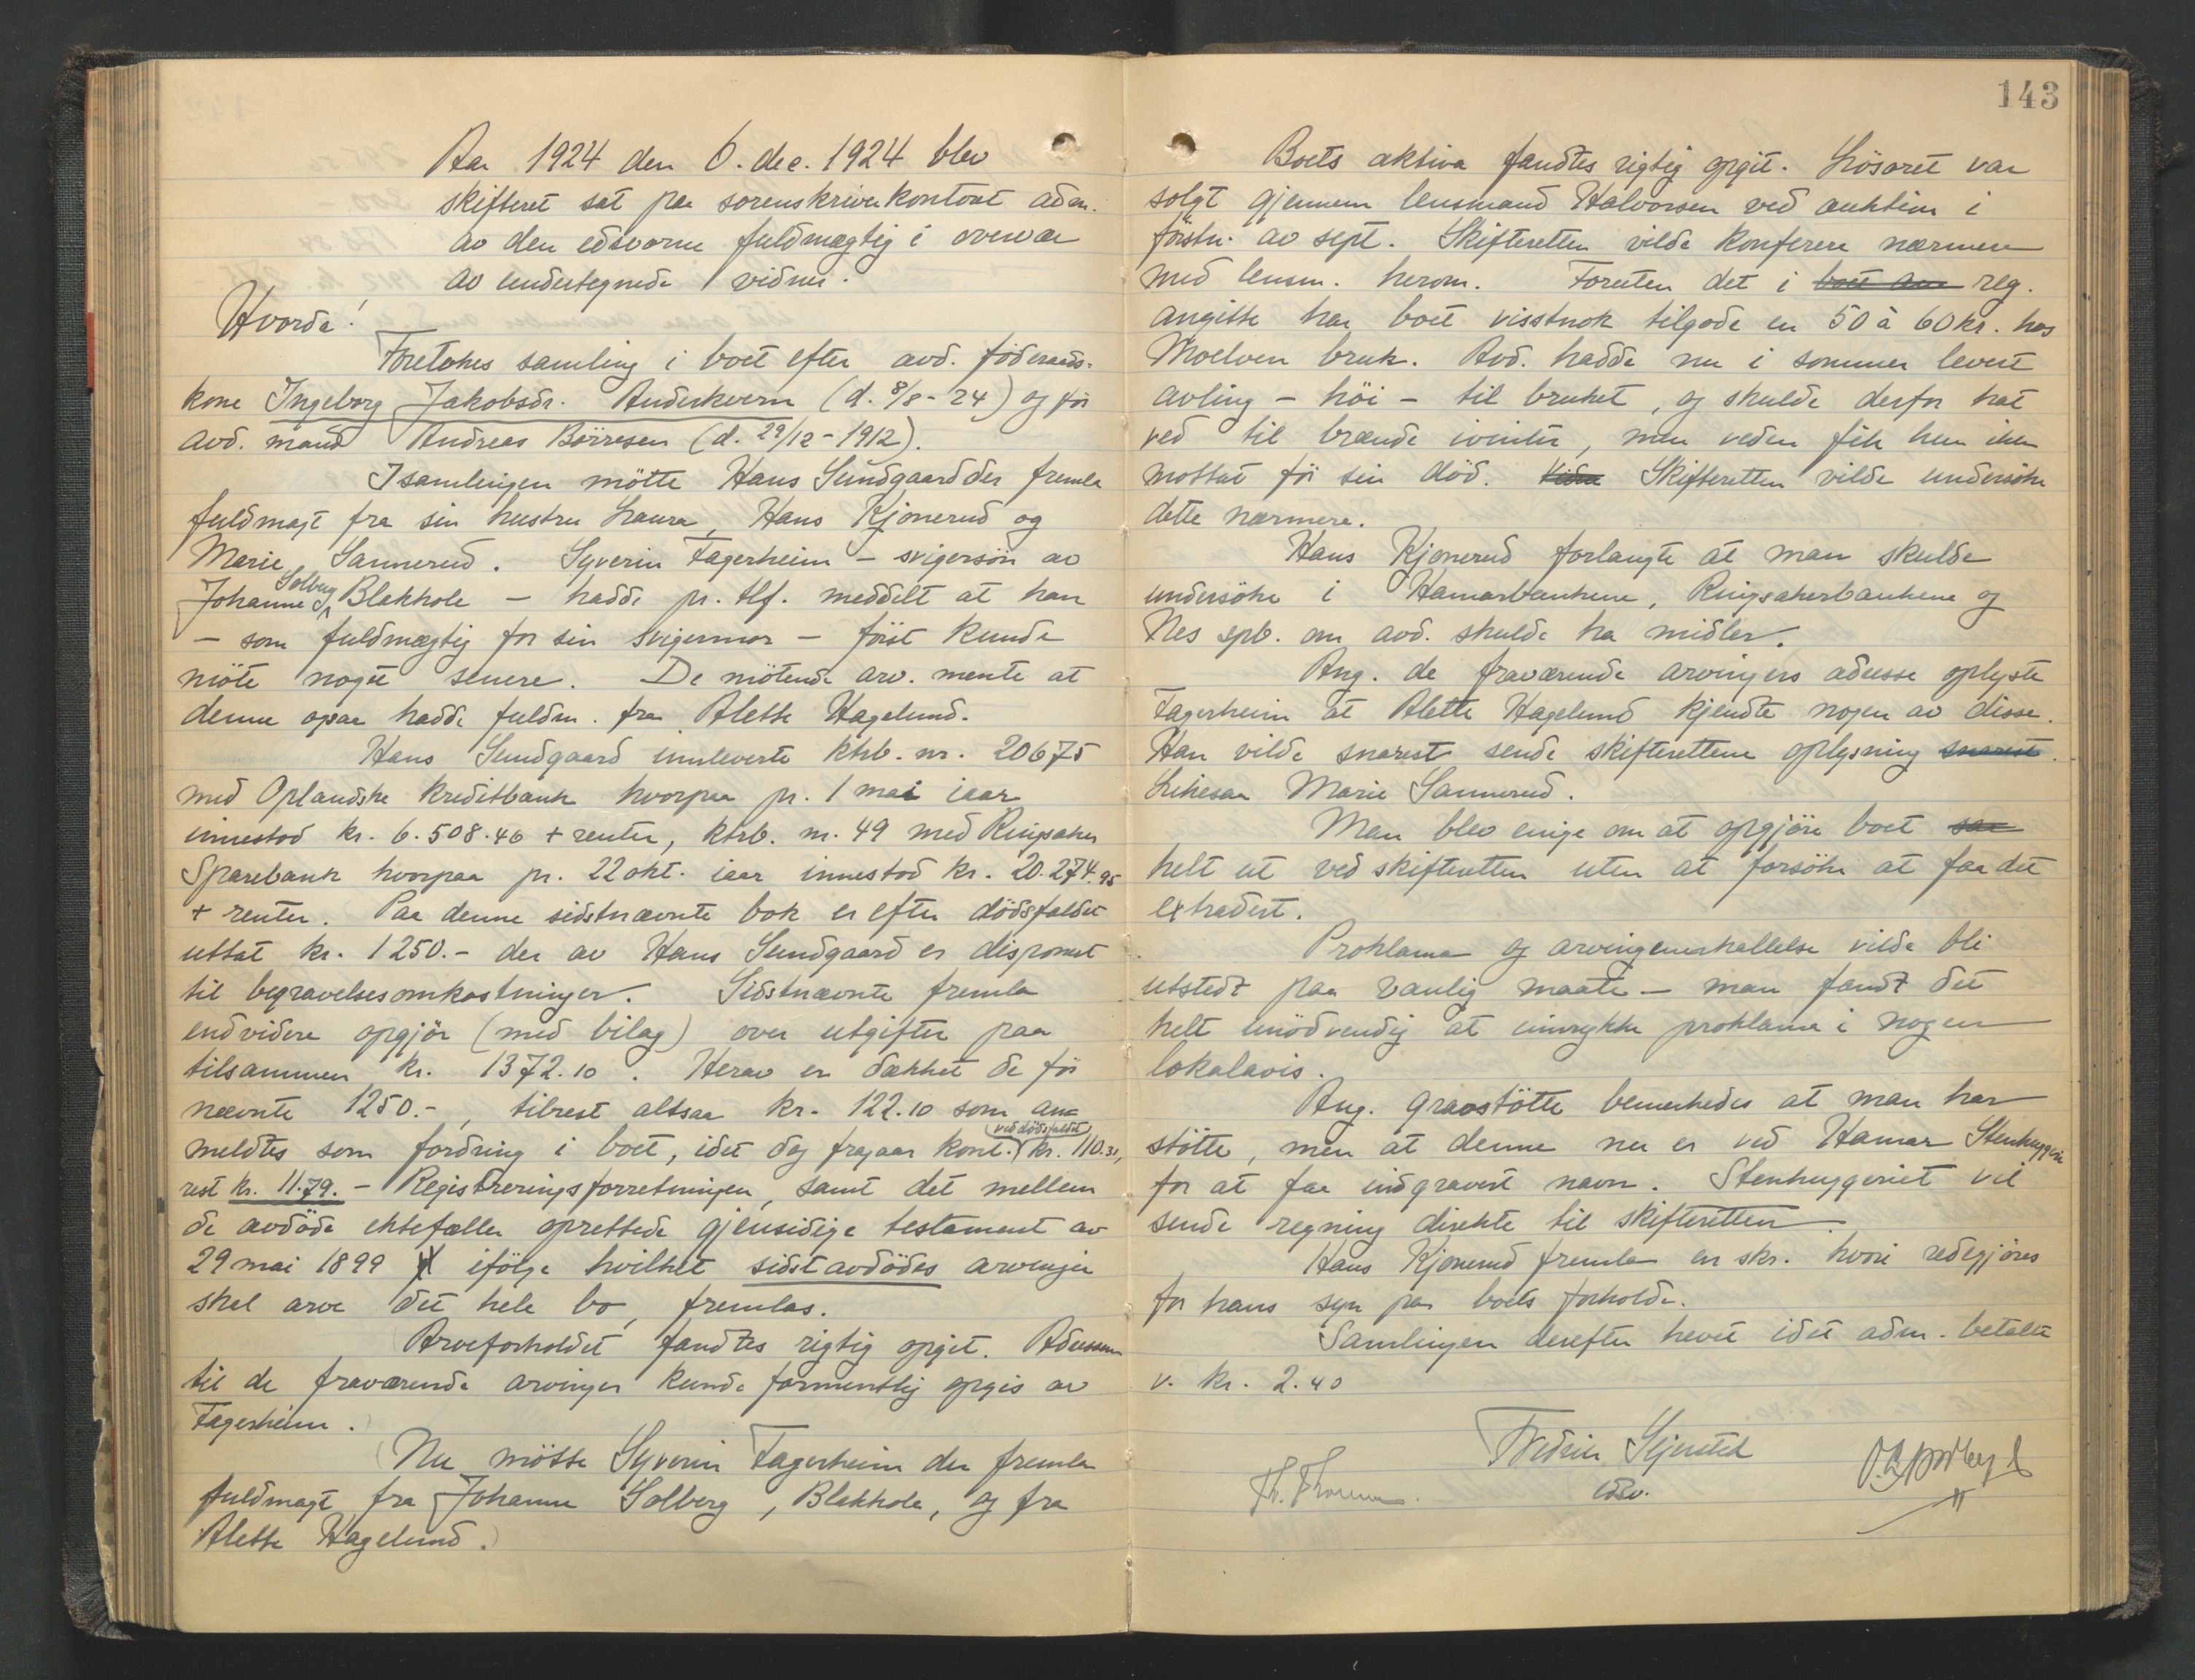 Aar 1924 den 6. dec. 1924 blev
skifteret sat paa sorenskriverkontoret adm.
av den edsvorne fuldmægtig i overvær
av undertegnede vidner.
Hvorda!
Foretokes samling i boet efter avd. föderaads-
kone Ingeborg Jakobsdr. Anderkvern (d. 8/8-24) og för
avd. mand Andreas Börresen (d. 29/12-1912).
I samlingen mötte Hans Sundgaard der fremla
fuldmagt fra sin hustru Laura, Hans Kjonerud og
Marie Sannerud. Syverin Fagerheim – svigersön av
Johanne Solberg Blakhole – hadde pr. tlf. meddelt at han
– som fuldmægtig for sin svigermor – först kunde
möte noget senere. De mötende arv. mente at
denne ogsaa hadde fuldm. fra Alette Hagelund.
Hans Sundgaard innleverte ktrb. nr. 20675
med Oplandske kreditbank hvorpaa pr. 1 mai iaar
innestod kr. 6.508.46 + renter, ktrb. nr. 49 med Ringsaker
Sparebank hvorpaa pr. 22 okt. iaar innestod kr. 20.274.95
+ renter. Paa denne sidstnævnte bok er efter dödsfaldet
uttat kr. 1250.- der av Hans Sundgaard er disponert
til begravelsesomkostninger. Sidstnævnte fremla
endvidere opgjör (med bilag) over utgifter paa
tilsammen kr. 1372.10. Herav er dækket de för
nævnte 1250.-, tilrest altsaa kr. 122.10 som an-
meldtes som fordring i boet, idet dog fragaar kont. (ved dödsfaldet) kr. 110.31,
rest kr. 11.79. – Registreringsforretningen, samt det mellem
de avdöde ektefæller oprettede gjensidige testament av
29 mai 1899 ifölge hvilket sidstavdödes arvinger
skal arve det hele bo, fremlas.
Arveforholdet fandtes rigtig opgit. Adressen
til de fraværende arvinger kunde formentlig opgis av
Fagerheim.
(Nu mötte Syverin Fagerheim der fremla
fuldmagt fra Johanne Solberg, Blakhole, og fra
Alette Hagelund.)
143
Boets aktiva fandtes rigtig opgit. Lösöret var
solgt gjennem lensmand Halvorsen ved auktion i
förstn. av sept. Skifteretten vilde konferere nærmere
med lensm. herom. Foruten det i boet reg.
angitte har boet visstnok tilgode en 50 à 60 kr. hos
Moelven bruk. Avd. hadde nu i sommer levert
avling – höi – til bruket, og skulde derfor hat
ved til brænde ivinter, men veden fik hun ikke
mottat för sin död. Skifteretten vilde undersöke
dette nærmere.
Hans Kjonerud forlangte at man skulde
undersöke i Hamarbankene, Ringsakerbankene og
Nes spb. om avd. skulde ha midler.
Ang. de fraværende arvingers adresse oplyste
Fagerheim at Alette Hagelund kjendte nogen av disse.
Han vilde snarest sende skifterettene oplysning snarest.
Likesaa Marie Sannerud.
Man blev enige om at opgjöre boet saa
helt ut ved skifteretten uten at forsöke at faa det
extradert.
Proklama og arvingeinnkallelse vilde bli
utstedt paa vanlig maate – man fandt det
helt unödvendig at innrykke proklama i nogen
lokalavis.
Ang. gravstötte bemerkedes at man har
stötte, men at denne nu er ved Hamar Stenhuggeri
for at faa indgravert navn. Stenhuggeriet vil
sende regning direkte til skifteretten.
Hans Kjonerud fremla en skr. hvori redegjöres
for hans syn paa boets forholde.
Samlingen derefter hevet idet adm. betalte
v. kr. 2.40
edsv.